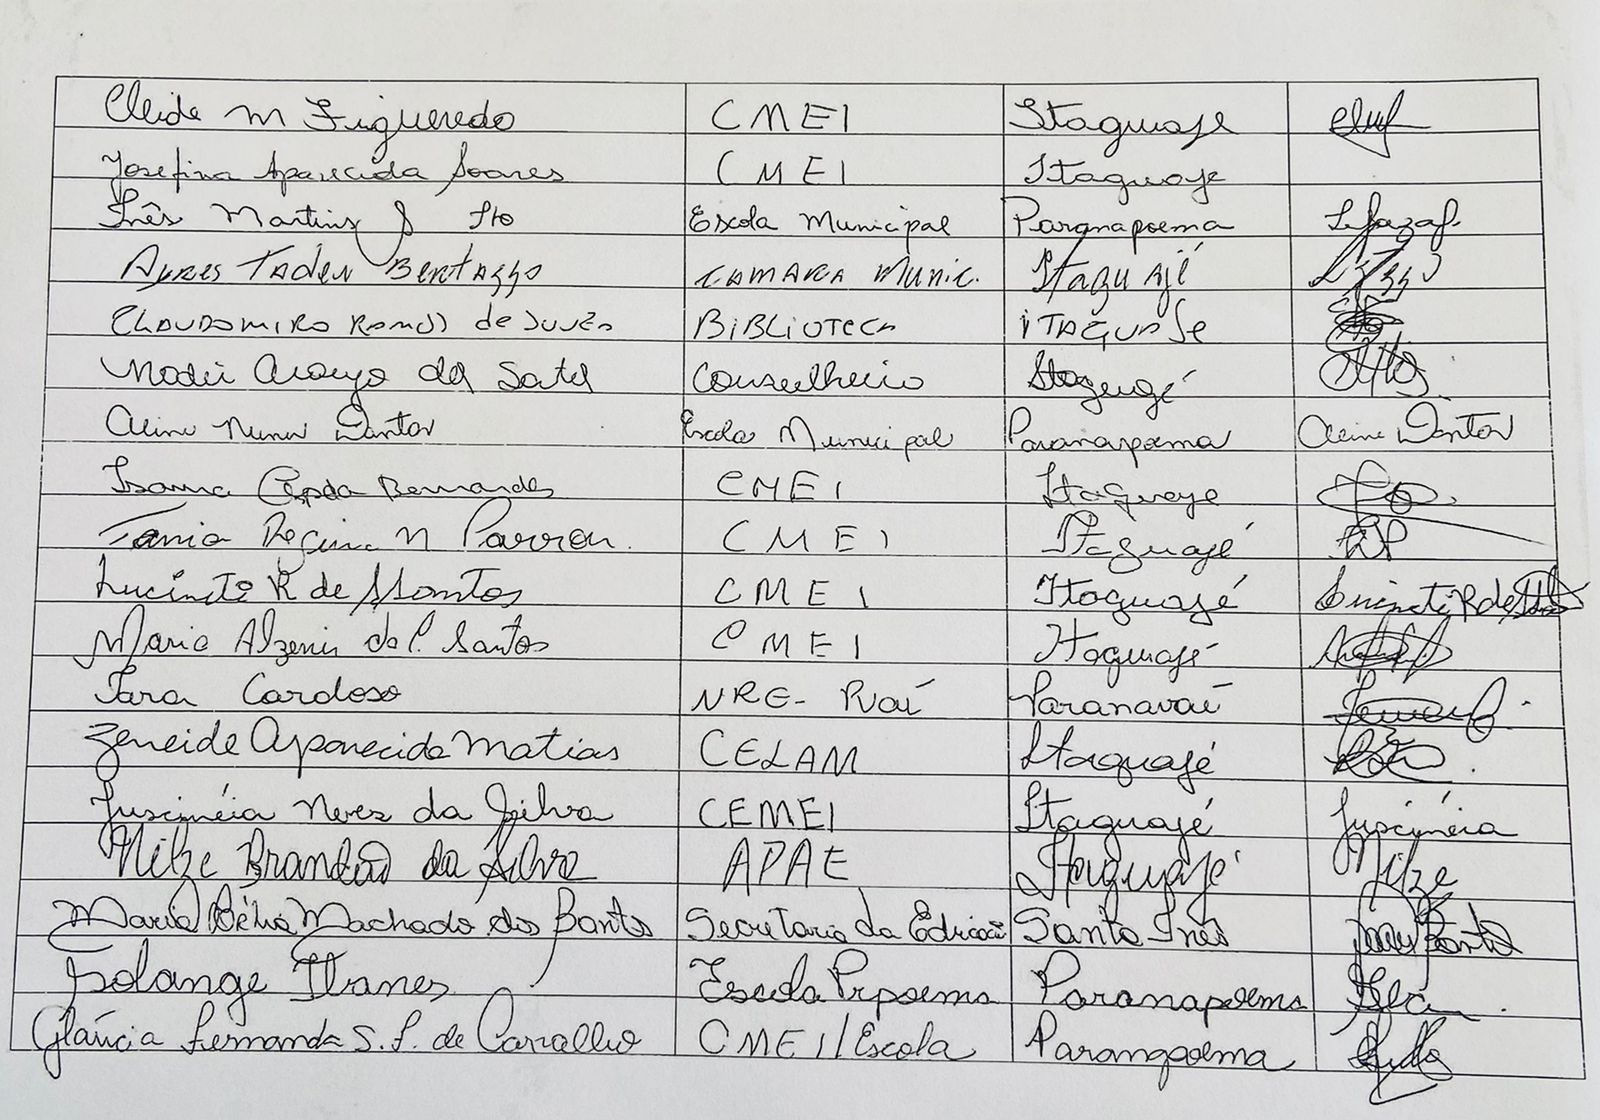 Cleide M Figueredo CMEI Itaguaje
Josefina Aparecida Soares CMEI Itaguaje
Inês Martins Escola Municipal Paranapoema
Ayres Tadeu Bertazzo CAMARA MUNIC. Itaguajé
CLAUDOMIRO RAMOS de BIBLIOTECA ITAGUAJe
Araujo Conselheiro Itaguajé
Aline Nunes Dantas Escola Municipal Paranapoema Aline Dantas
Bernardes CMEI Itaguaje
Tania Regina N CMEI Itaguajé
R de CMEI Itaguajé
Maria Alzenir da C. Santos CMEI Itaguajé
Iara Cardoso NRE- Pvaí Paranavaí
Zeneide Aparecida Matias CELAM Itaguajé
Juscinéia Neves da Silva CEMEI Itaguajé Juscinéia
Nilze Brandão da Silva APAE Itaguajé Nilze
Maria Célia Machado dos Secretaria da Santo Inês
Solange Ibanes Escola Prpoema Paranapoema
Gláucia Fernanda S. F. de Carvalho CMEI/Escola Paranapoema